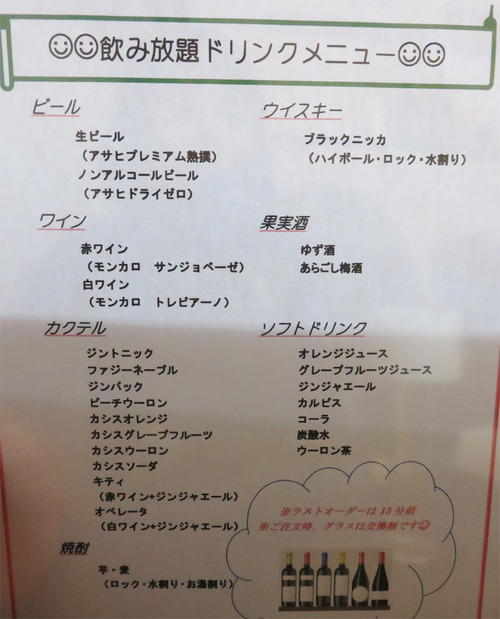 ☺☺飲み放題ドリンクメニュー☺☺
ビール
生ビール
（アサヒプレミアム熟撰）
ノンアルコールビール
（アサヒドライゼロ）
ウイスキー
ブラックニッカ
（ハイボール・ロック・水割り）
ワイン
赤ワイン
（モンカロ　サンジョベーゼ）
白ワイン
（モンカロ　トレビアーノ）
果実酒
ゆず酒
あらごし梅酒
カクテル
ジントニック
ファジーネーブル
ジンバック
ピーチウーロン
カシスオレンジ
カシスグレープフルーツ
カシスウーロン
カシスソーダ
キティ
（赤ワイン+ジンジャエール）
オペレータ
（白ワイン+ジンジャエール）
ソフトドリンク
オレンジジュース
グレープフルーツジュース
ジンジャエール
カルピス
コーラ
炭酸水
ウーロン茶
焼酎
芋・麦
（ロック・水割り・お湯割り）
※ラストオーダーは15分前
※ご注文時、グラスは交換制です☺